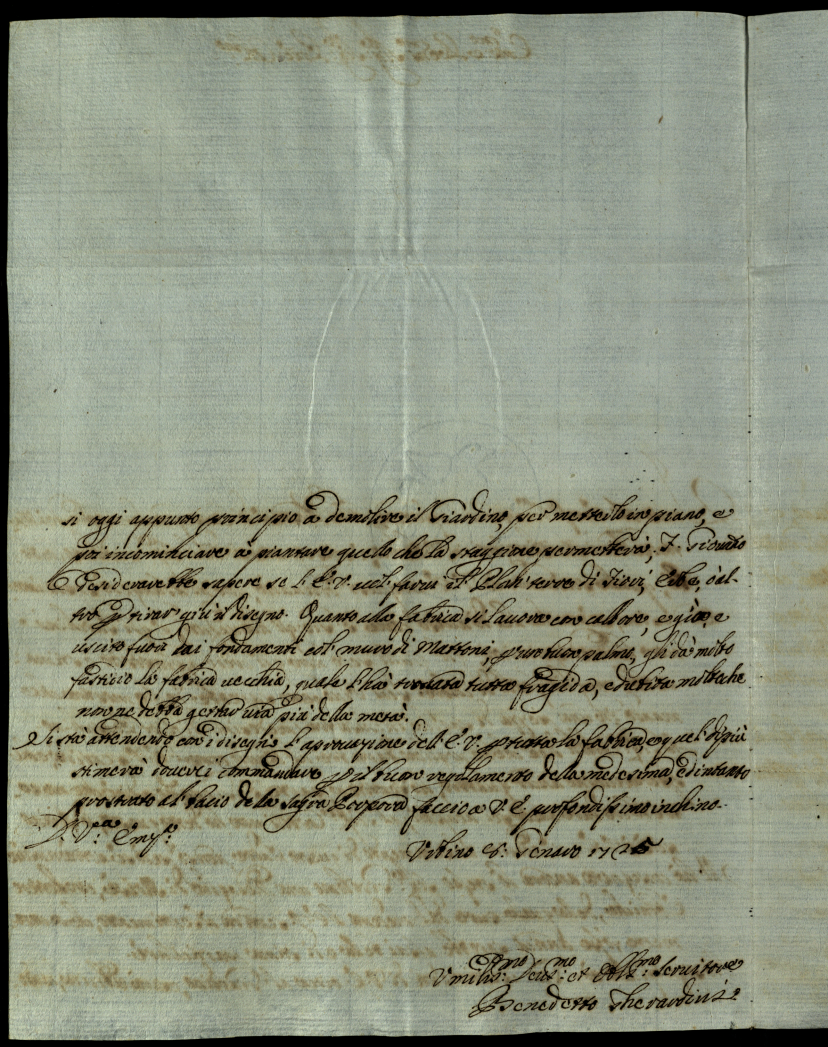 si oggi appunto principio à demolire il Giardino, per metterlo in piano, e
poi incominciare à piantare quello che la staggione permetterà.
desiderarebbe sapere se l'E.V. vol farvi il terra di Fiori, Erbe, ò al-
tro p tirar giù il disegno. Quanto alla fabrica si lavora con callore, e già è
uscito fuori dai fondamenti col muro di Mattoni, palmi, gli dà molto
fastidio la fabrica vecchia, quale l'hà trovata tutta fragida, e dubita molto che
non ne debba gettar via più della metà.
Si stà attendendo con i disegni l'aprovazione dell'E.V. p tutta la fabrica, e quel di più
stimerà doverci commandare p il buon regulamento della medesima, ed intanto
prostrato al bacio della Sagra Porpora faccio a V.E. profondissimo inchino.
D. V.ra Em.
Urbino Genaro 1725
Umilis.mo Dev.mo et Obl.mo Servitore
Benedetto Gherardini